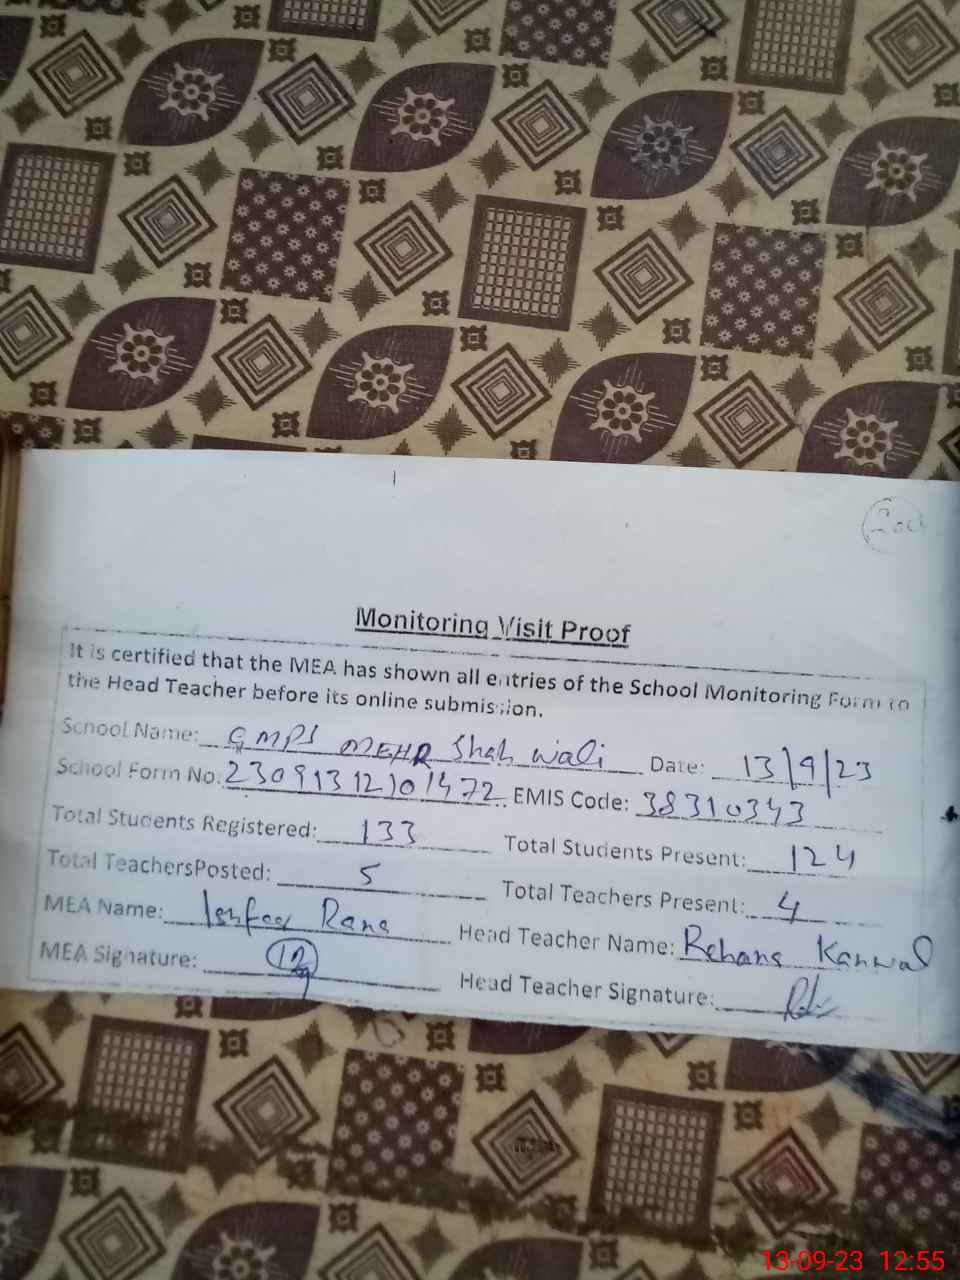 Monitoring Visit Proof
It is certified that the MEA has shown all entries of the School Monitoring Form to
the Head Teacher before its online submission.
School Name: GMPS MEHR Shah wali Date: 13/9/23
School Form No: 23091312101472 EMIS Code: 38310343
Total Students Registered: 133 Total Students Present: 124
Total TeachersPosted: 5 Total Teachers Present: 4
MEA Name: Rana Head Teacher Name: Rehana Kanwal
MEA Signature: Head Teacher Signature:
13-09-23 12:55